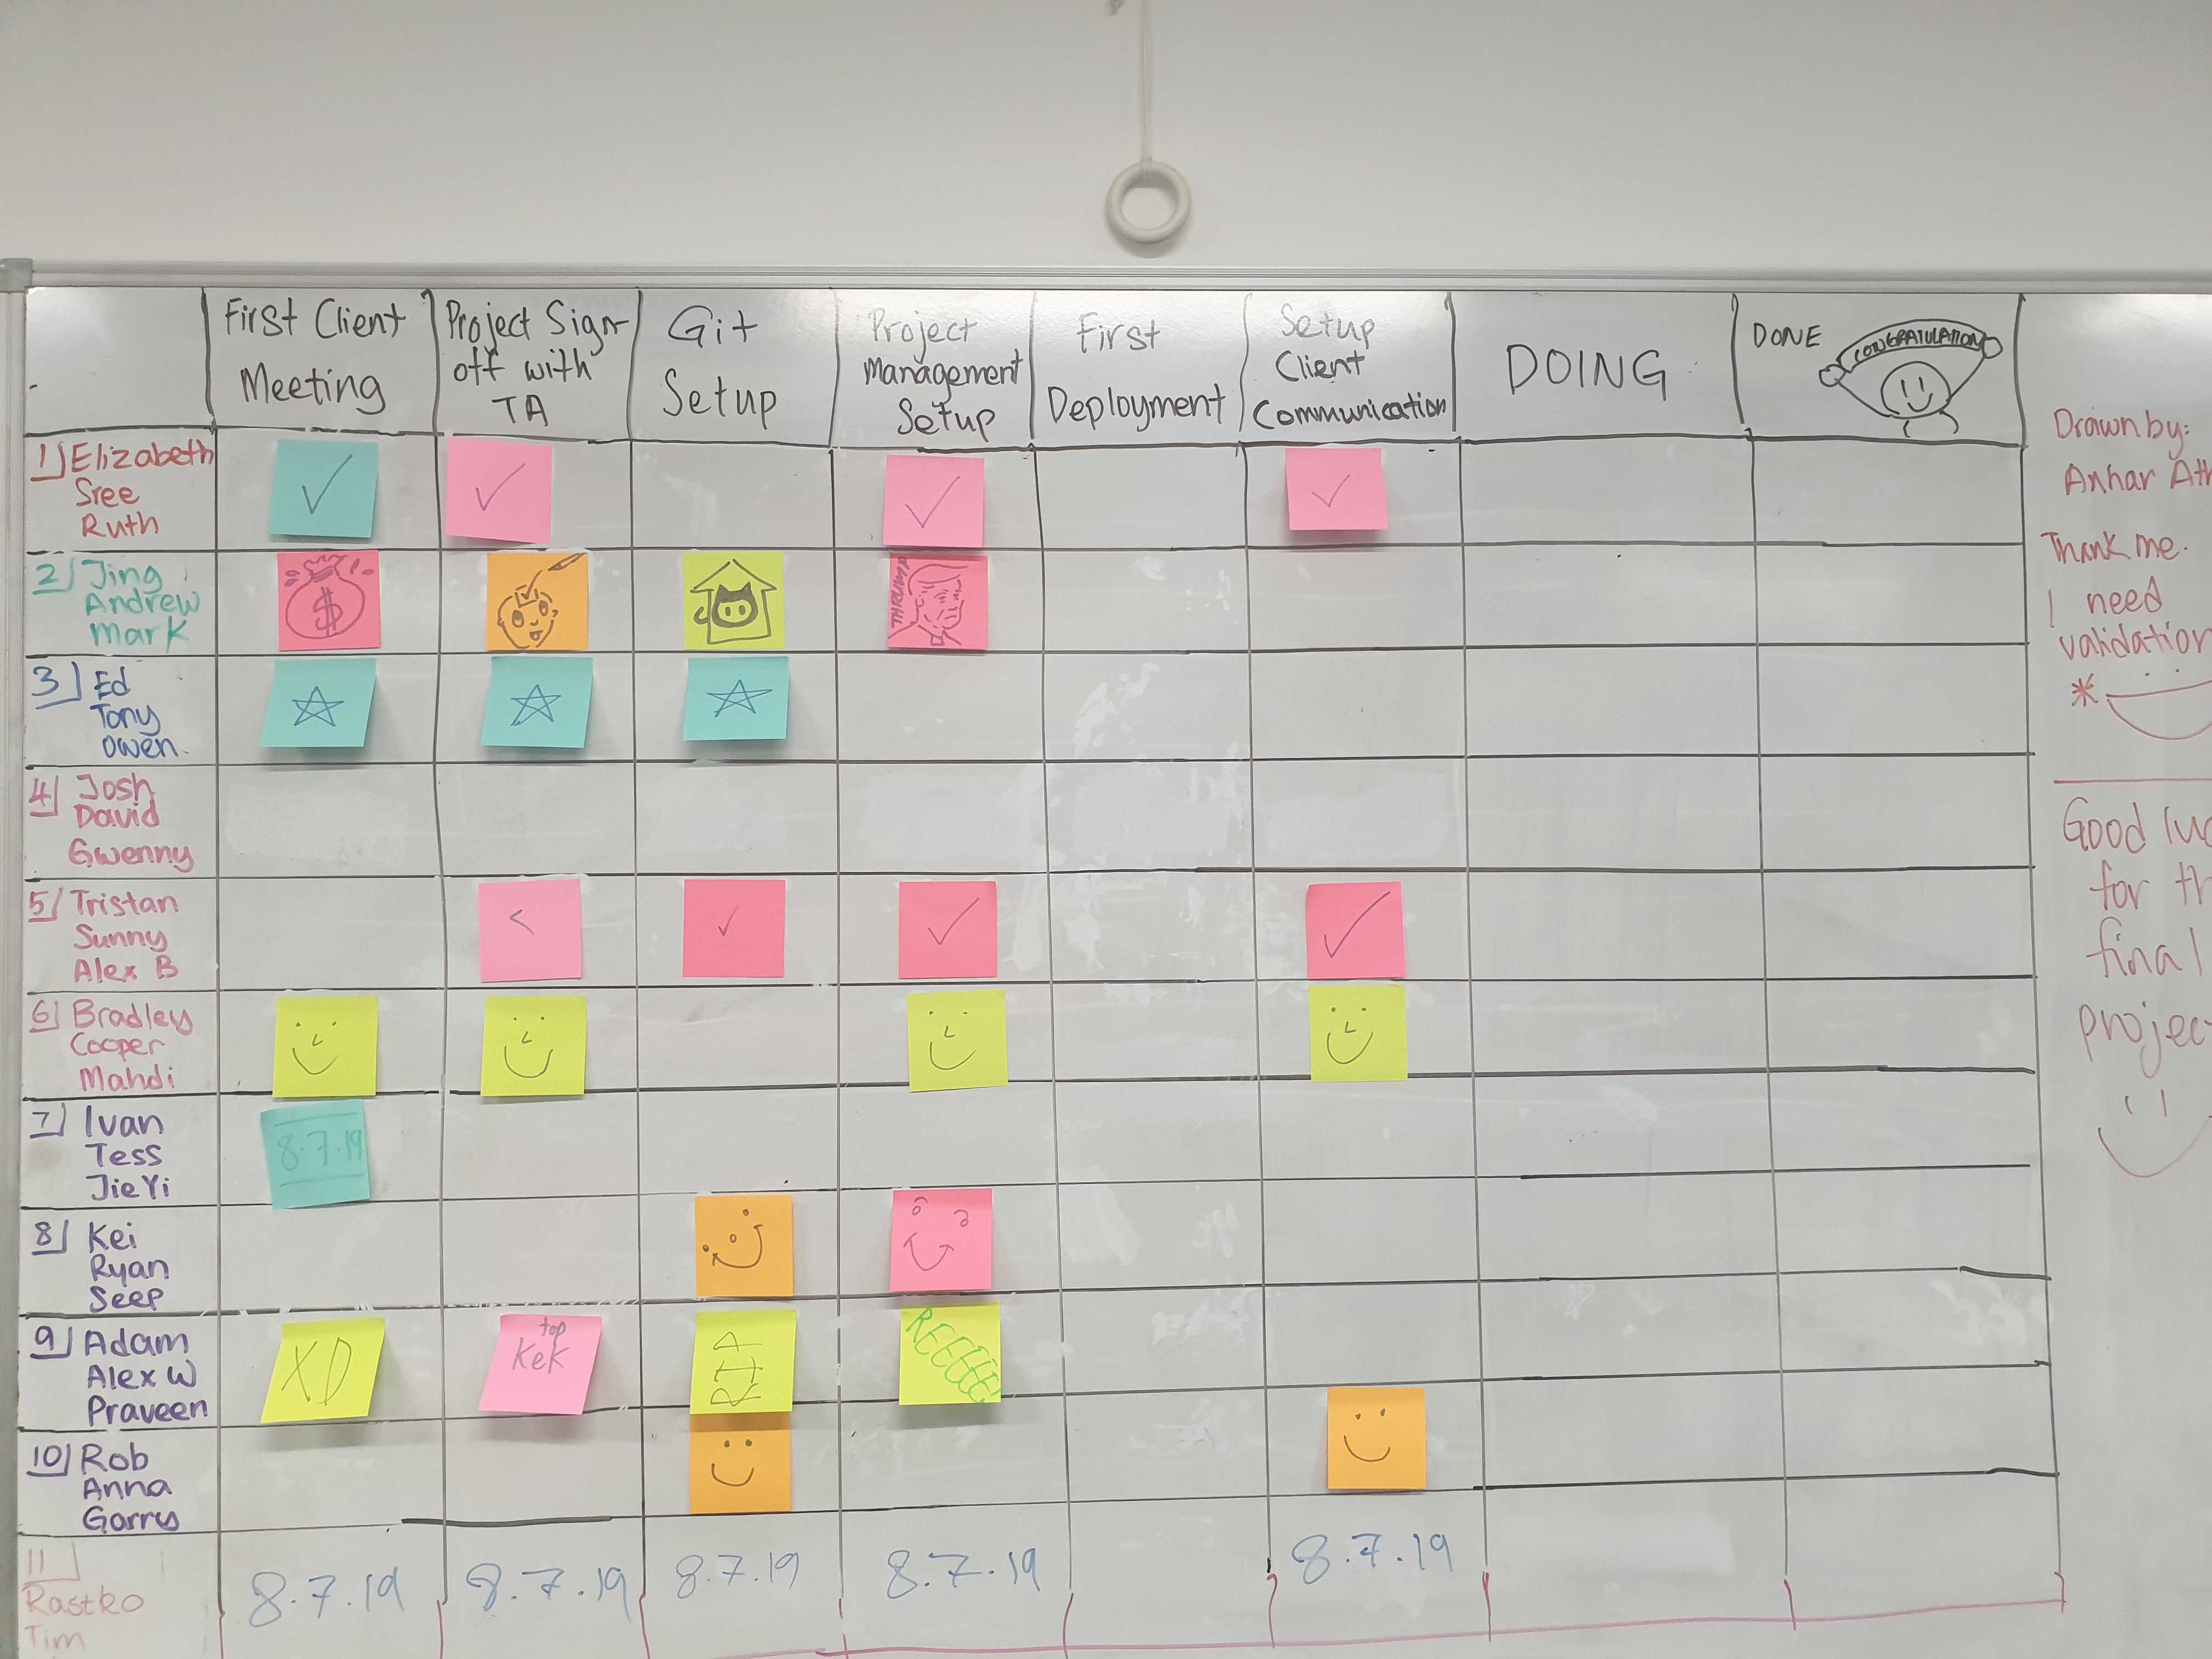 First Client
Meeting
Project Sign-
off with
TA
Git
Setup
Project
Management
Setup
First
Deployment
Setup
Client
Communication
DOING
DONE
CONGRATULATION
1) Elizabeth
Sree
Ruth
2) Jing
Andrew
Mark
$
3) Ed
Tony
Owen.
4) Josh
David
Gwenny
5) Tristan
Sunny
Alex B
6) Bradley
Cooper
Mahdi
7) Ivan
Tess
JieYi
8.7.19
8) Kei
Ryan
Seep
9) Adam
Alex W
Praveen
XD
top
KeK
RIP
REEEEE
10) Rob
Anna
Garry
11)
Rastko
Tim
8.7.19
8.7.19
8.7.19
8.7.19
8.7.19
Drawn by:
Anhar Ath
Thank me.
I need
validation
Good luc
for th
final
projec